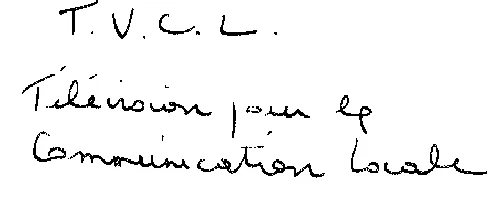 T.V.C.L.
Télévision pour la
Communication Locale